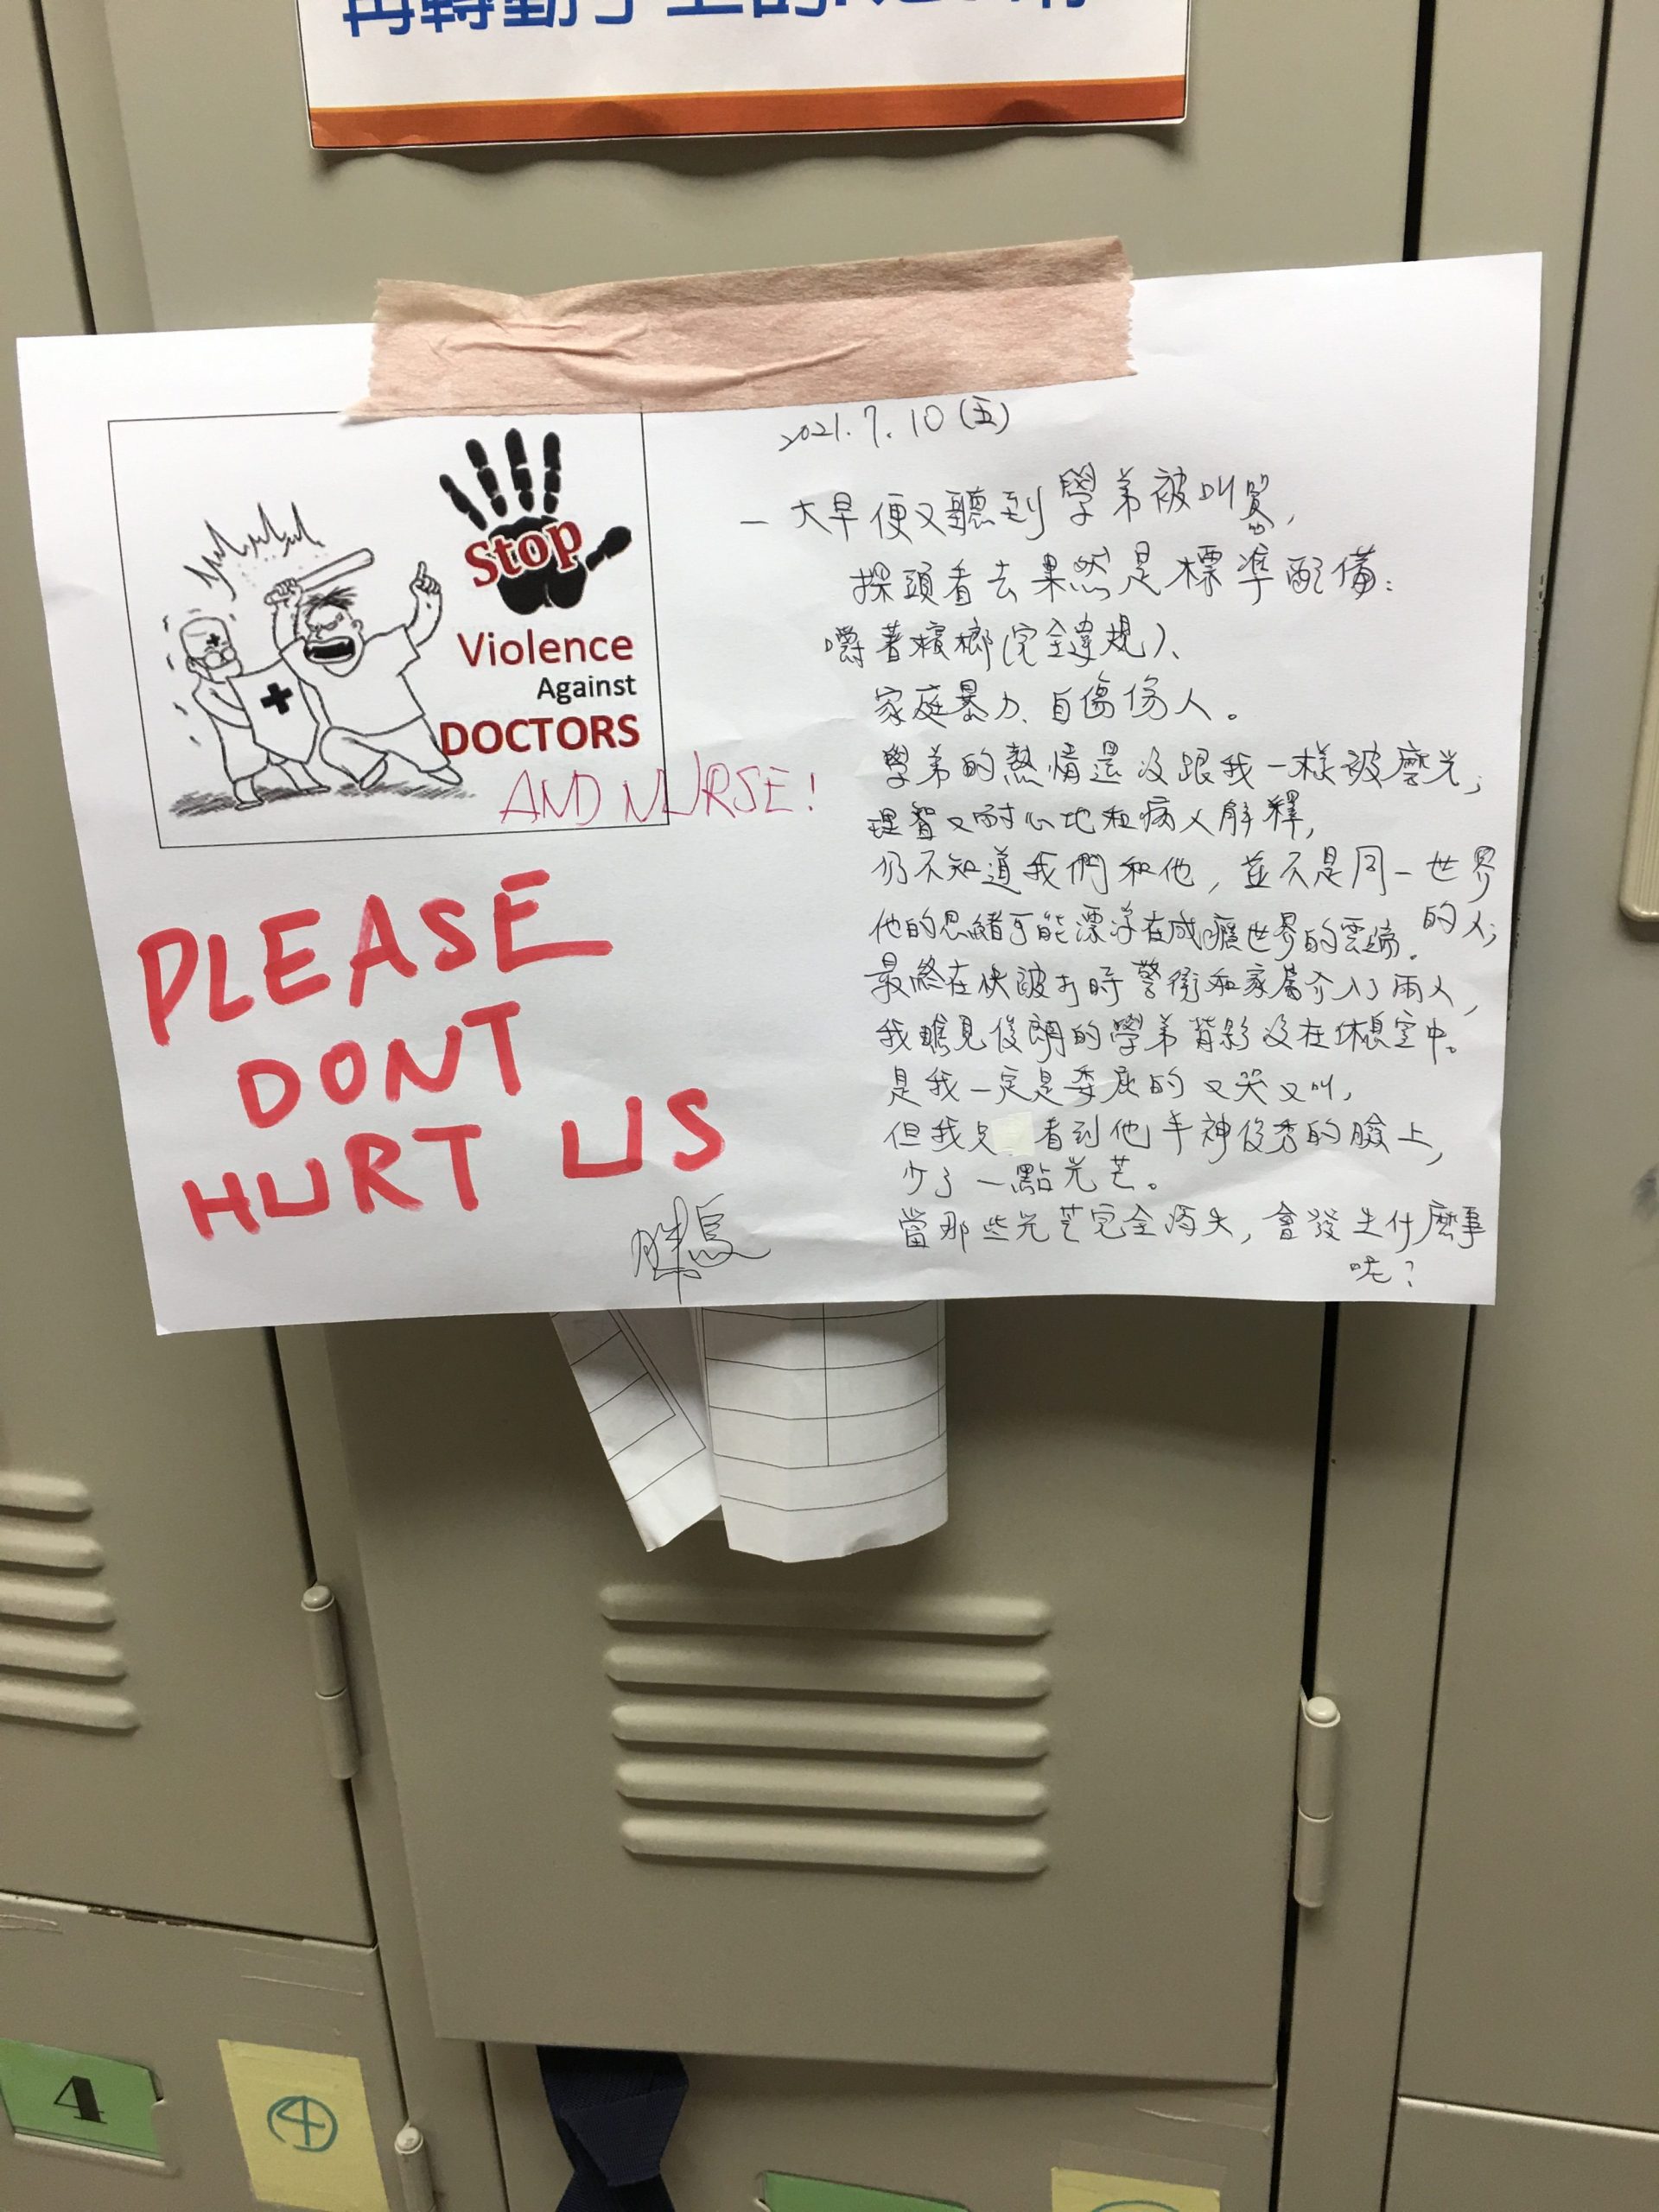 再轉動手上的
Stop
Violence
Against
DOCTORS
AND NURSE!
PLEASE
DONT
HURT US
2021.7.10(五)
一大早便又聽到學弟被叫罵,
探頭看去果然是標準配備:
嚼著檳榔(完全違規)、
家庭暴力、自傷傷人。
學弟的熱情還沒跟我一樣被磨光,
理智又耐心地和病人解釋,
仍不知道我們和他,並不是同一世界的人;
他的思緒可能漂浮在成癮世界的雲端.
最終在快被打時警衛和家屬介入了兩人,
我瞧見俊朗的學弟背影沒在休息室中。
是我一定是委屈的又哭又叫,
但我只看到他丰神俊秀的臉上,
少了一點光芒。
當那些光芒完全消失,會發生什麼事呢?
4
4